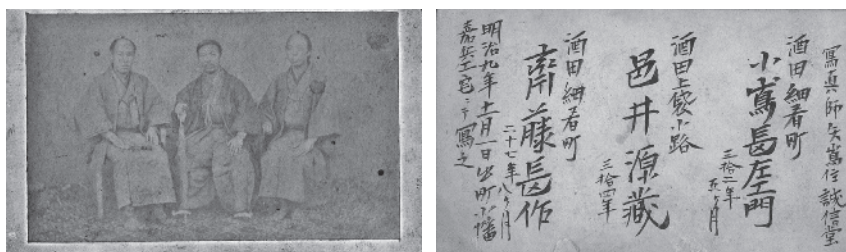 寫真師矢嶌住誠信堂
酒田細肴町
小嶌長左エ門
三拾二年
五ヶ月
酒田上袋小路
邑井源藏
三拾四年
酒田細肴町
齋藤長作
二十七年八ヶ月
明治九年十一月一日出町小幡
嘉兵エ宅ニテ寫之